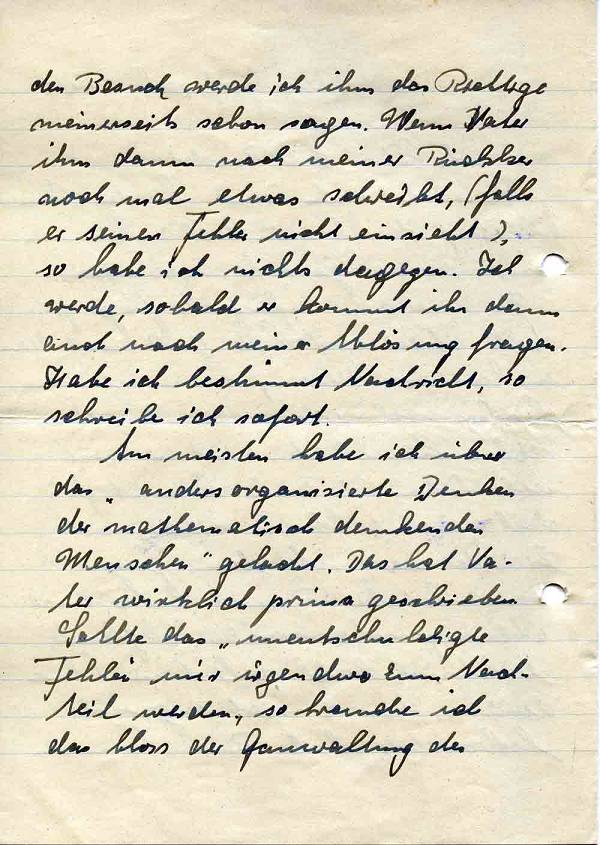 den Besuch werde ich ihm das Richtige
meinerseits schon sagen. Wenn Vater
ihm dann nach meiner
noch mal etwas schreibt, (falls
er seinen Fehler nicht einsieht),
so habe ich nichts dagegen. Ich
werde, sobald er kommt ihn dann
auch nach meiner Ablösung fragen.
Habe ich bestimmt Nachricht, so
schreibe ich sofort.
Am meisten habe ich über
das „anders organisierte Denken
der mathematisch denkenden
Menschen" gelacht. Das hat Va-
ter wirklich prima geschrieben
Sollte das „unentschuldigte
Fehlen mir irgendwo zum Nach-
teil werden, so brauche ich
das bloss der der